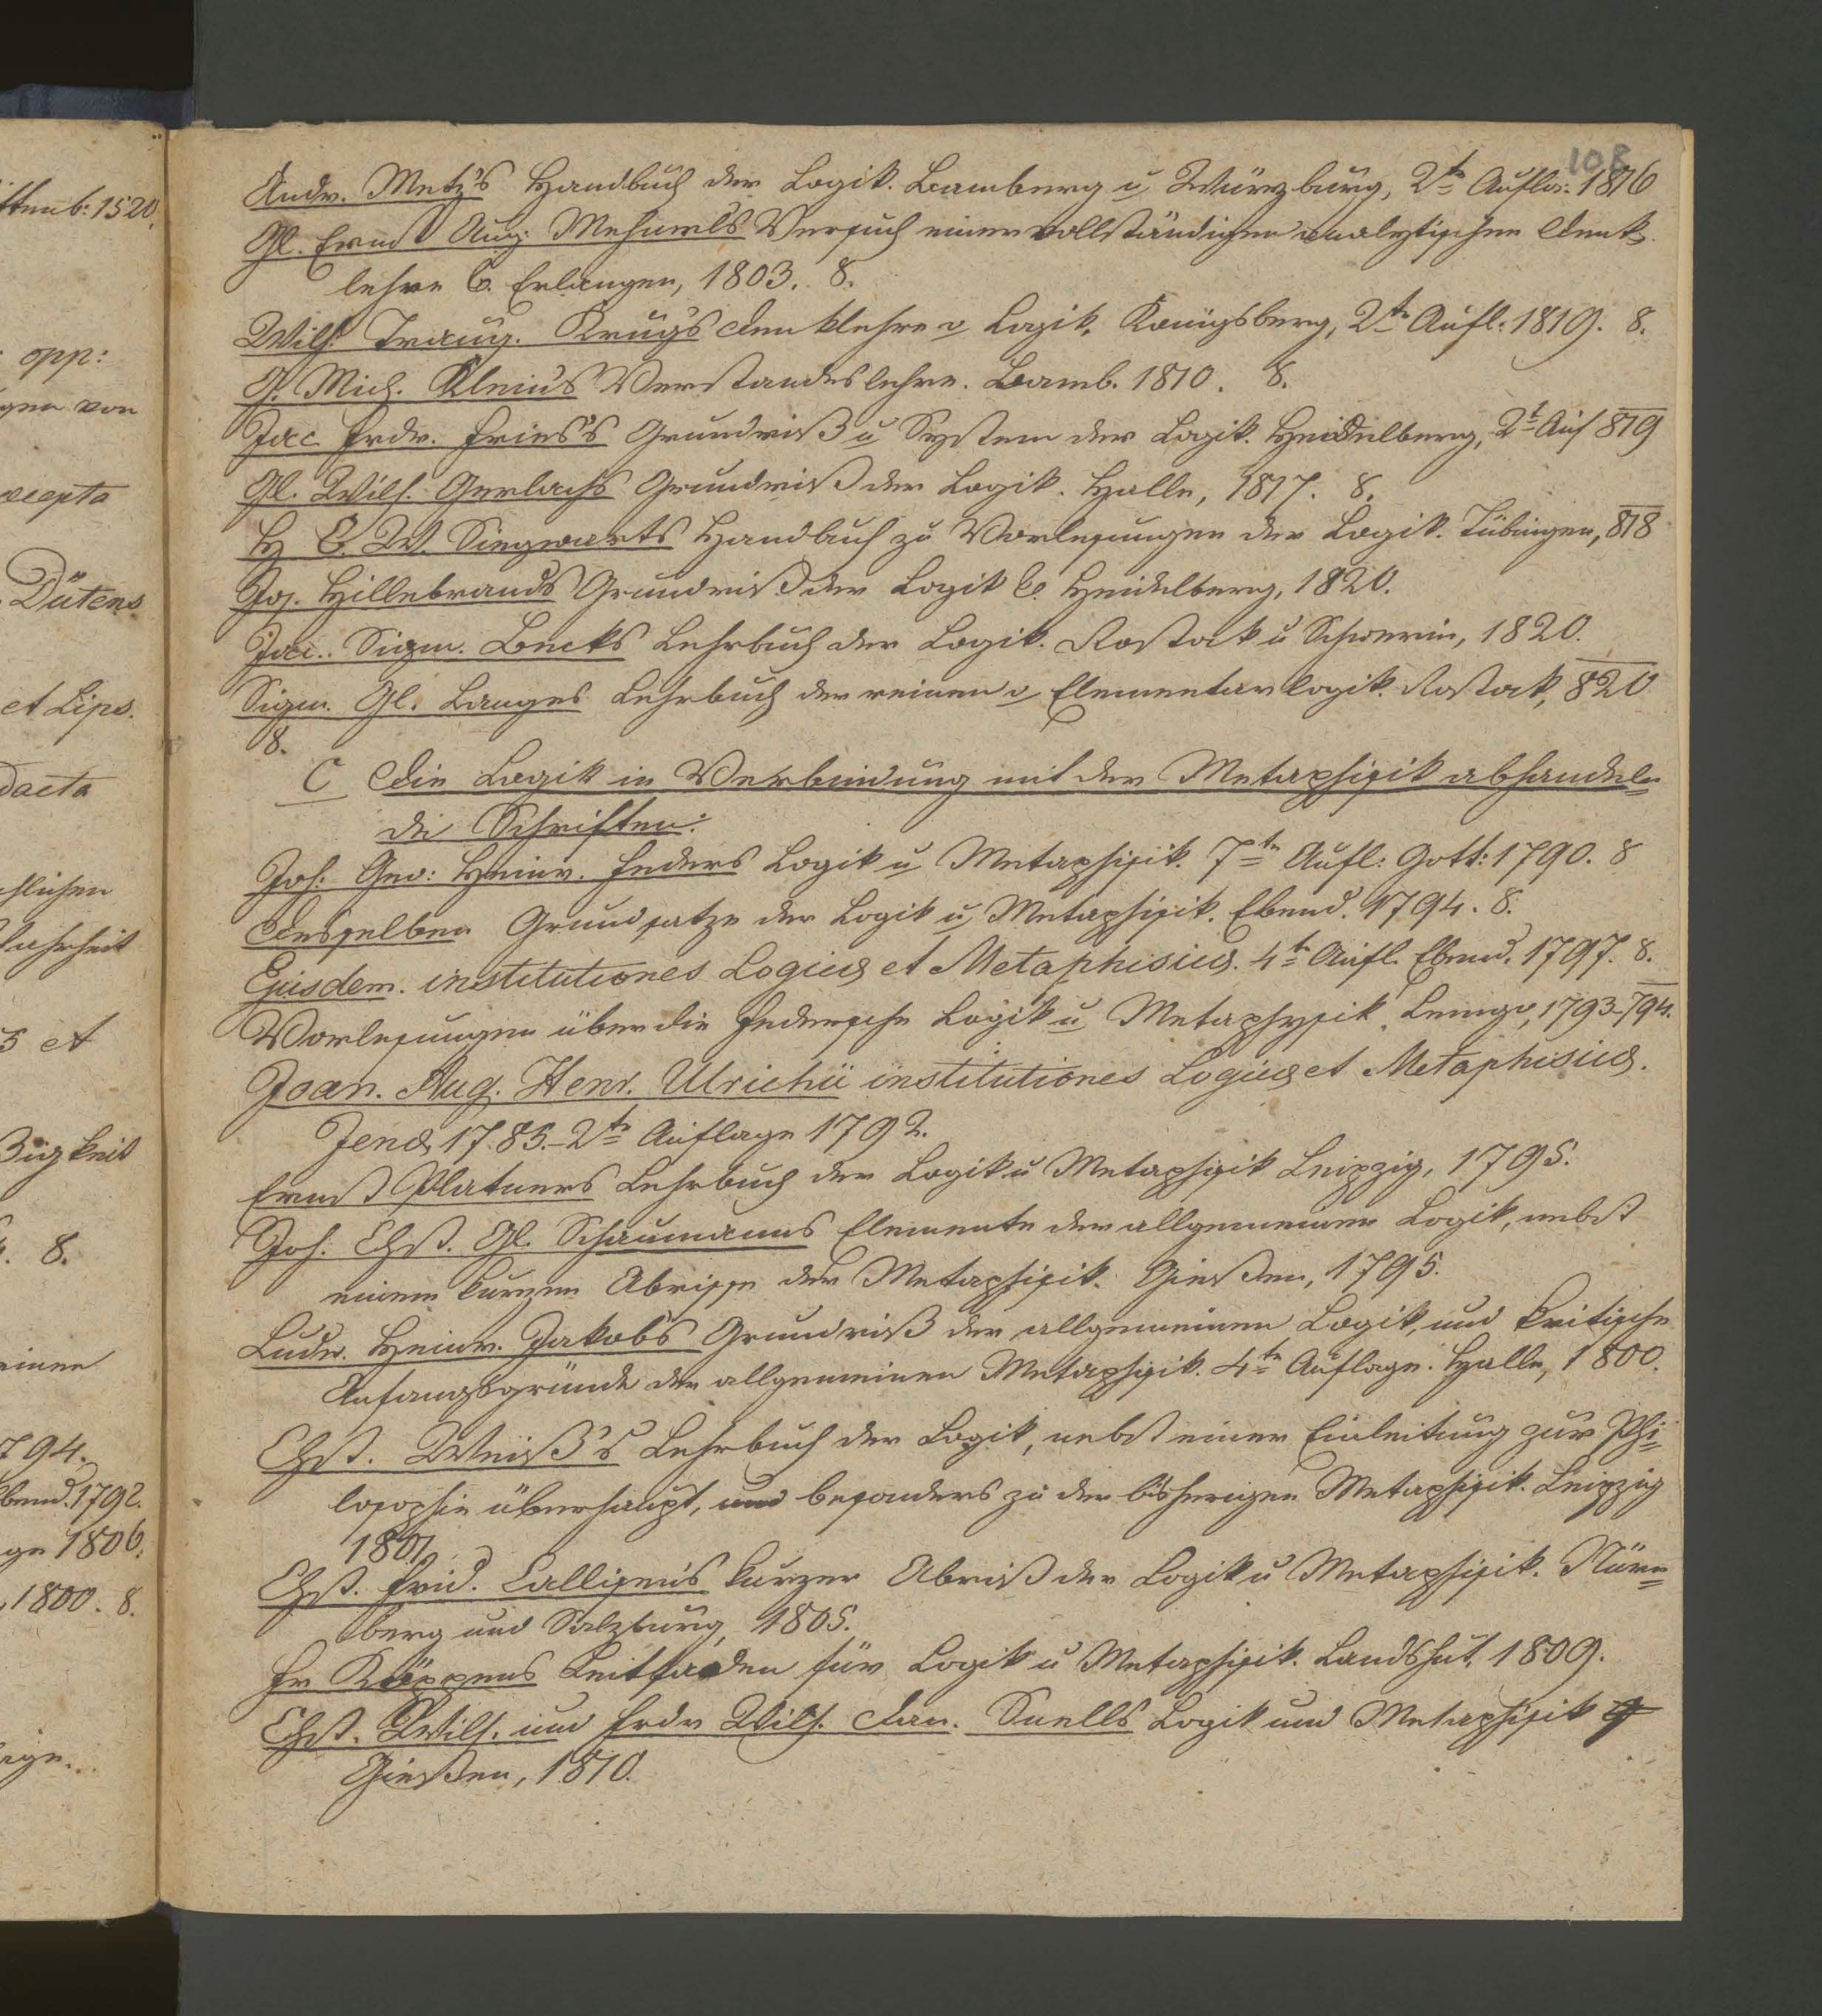 108
Andr. Metz's Handbuch der Logik. Bamberg u Würzburg, 2te Aufla: 1816
Gl. Ernst Aug. Mehmels Versuch einer vollständigen analytischen Denk-
lehre &. Erlangen, 1803. 8.
Wilh Traug. Krug's Denklehre o Logik. Königsberg, 2te Aufl: 1819. 8.
G. Mich. Kleins Verstandeslehre. Bamb. 1810. 8.
Jac Frdr. Fries's Grundriß u System der Logik. Heidelberg, 2t Auf 819
Gl. Wilh. Gerlachs Grundriß der Logik. Halle, 1817. 8.
H C. W. Siegwarts Handbuch zu Vorlesungen der Logik. Tübingen, 818
Jos. Hillebrands Grundriß der Logik &. Heidelberg, 1820.
Jac. Sigm. Becks Lehrbuch der Logik. Rostok u Schwerin, 1820.
Sigm. Gl. Langes Lehrbuch der reinen o Elementarlogik. Rostok, 820
8.
C Die Logik in Verbindung mit der Metaphisik abhandeln=
de Schriften:
Joh: Geo: Heinr. Feders Logik u Metaphisik. 7te Aufl: Gott: 1790. 8
Desselben Grundsatze der Logik u Metaphisik. Ebend. 1794. 8.
Ejusdem. institutiones Logicæ et Metaphisicæ. 4te Aufl. Ebend. 1797. 8.
Vorlesungen über die Federsche Logik u Metaphysik. Lemgo, 1793-794.
Joan. Aug. Henr. Ulrichii institutiones Logicæ et Metaphisicæ.
Jenæ, 1785.-2te Auflage 1792.
Ernst Platners Lehrbuch der Logik u Metaphisik Leipzig, 1795.
Joh: Chst. Gl. Schaumanns Elemente der allgemeinen Logik, nebst
einem kurzen Abrisse der Metaphisik. Gießen, 1795.
Ludw. Heinr. Jakobs Grundriß der allgemeinen Logik, und kritische
Anfangsgründe der allgemeinen Metaphisik. 4te Auflage. Halle, 1800.
Chst. Weiß's Lehrbuch der Logik, nebst einer Einleitung zur Phi=
losophie überhaupt, und besonders zu der bisherigen Metaphisik. Leipzig
1801.
Chst. Frid. Callisens kurzer Abriß der Logik u Metaphisik. Nürn=
berg und Salzburg, 1805.
Fr Köppens Leitfaden für Logik u Metaphisik. Landshut, 1809.
Chst. Wilh. und Frdr Wilh. Dan. Snells Logik und Metaphisik
Gießen, 1810.
ttenb: 1520.
opp:
gen von
Dütens
et Lips.
8.
794.
1792.
1806.
1800. 8.